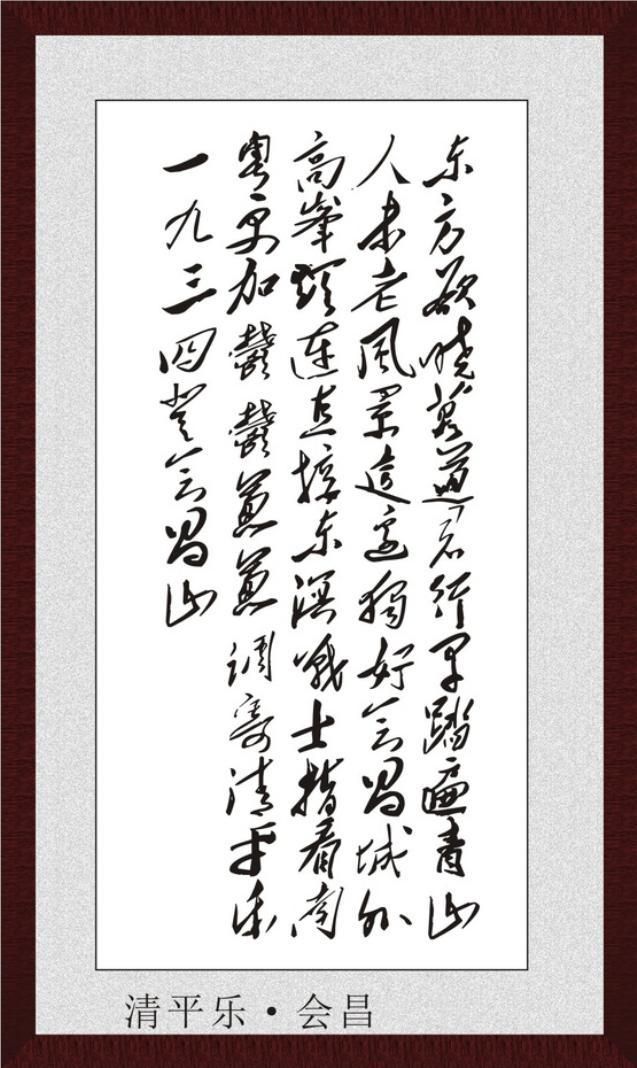 东方欲晓莫道君行早踏遍青山
人未老風景這边獨好会昌城外
高峯顛連直接东溟战士指看南
粵更加鬱鬱葱葱调寄清平乐
一九三四登会昌山
清平乐·会昌